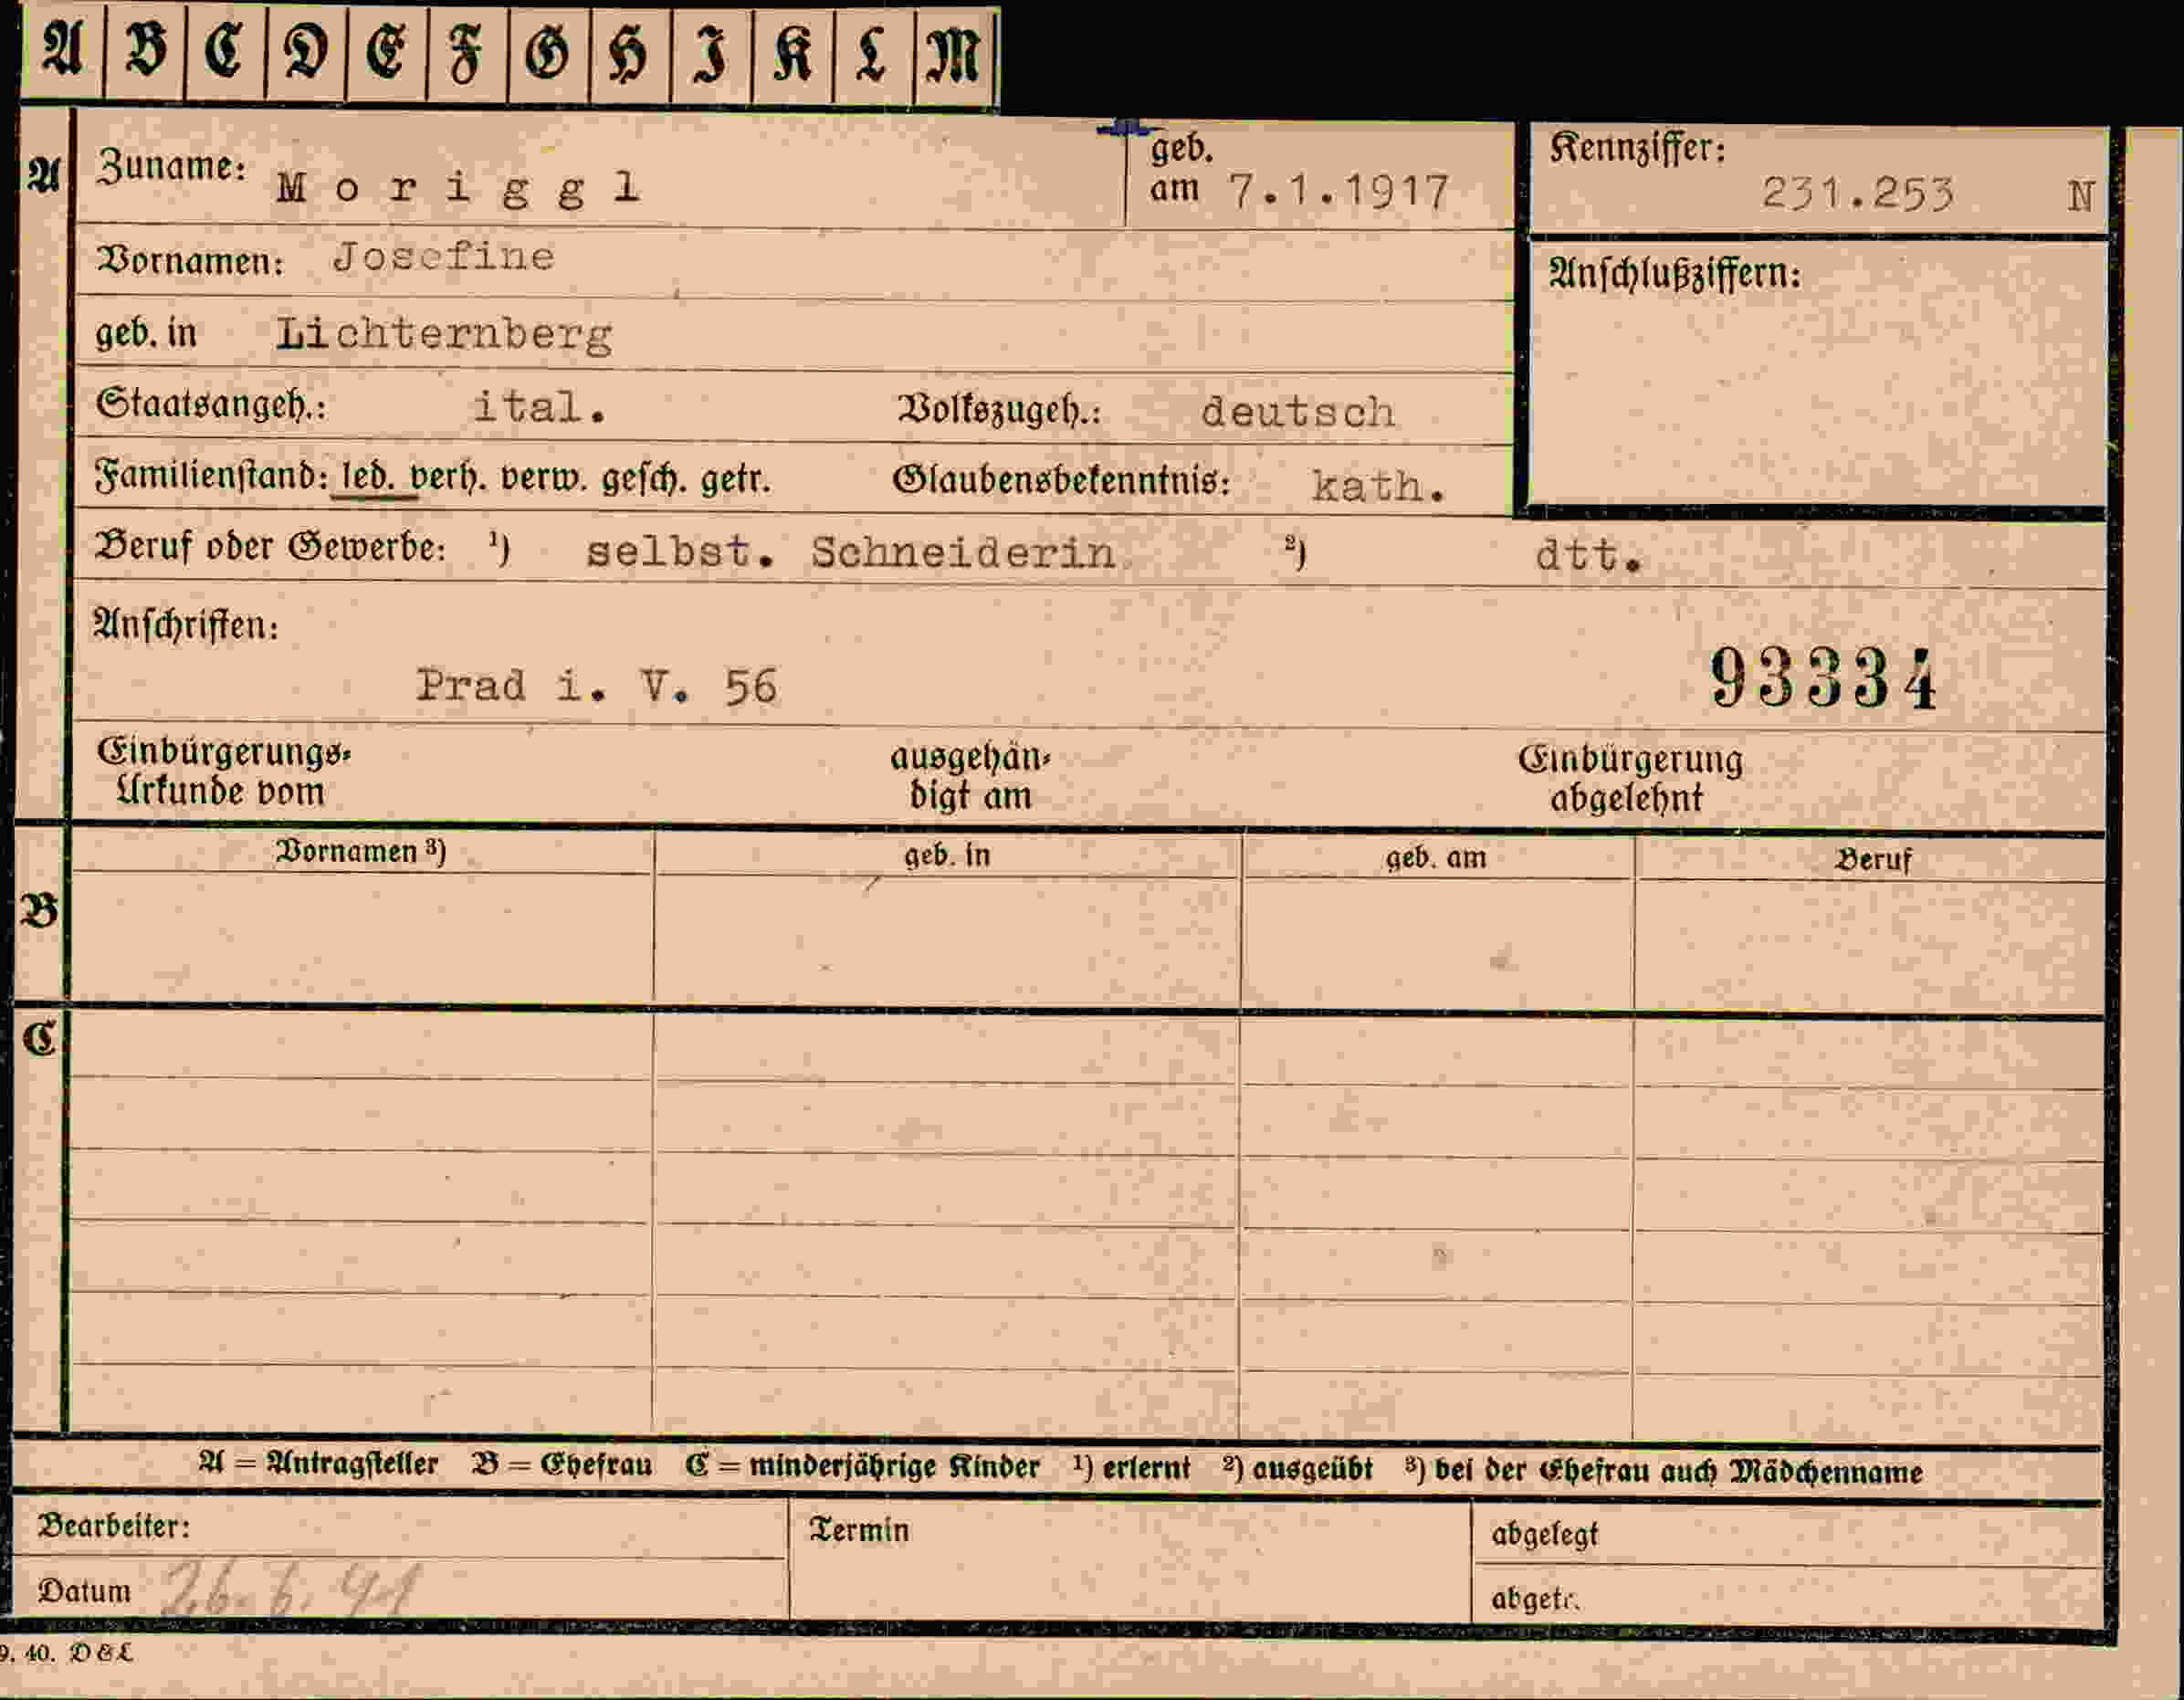 A B C D E F G H I K L M
A Zuname: Moriggl geb. am 7.1.1917 Kennziffer: 231.253 N
Vornamen: Josefine Anschlußziffern:
geb. in Lichternberg
Staatsangeh.: ital. Volkszugeh.: deutsch
Familienstand: led. verh. verw. gesch. getr. Glaubensbekenntnis: kath.
Beruf oder Gewerbe: ¹) selbst. Schneiderin ²) dtt.
Anschriften:
Prad i. V. 56 93334
Einbürgerungs- ausgehän- Einbürgerung
Urkunde vom digt am abgelehnt
Vornamen ³) geb. in geb. am Beruf
B
C
A = Antragsteller B = Ehefrau C = minderjährige Kinder ¹) erlernt ²) ausgeübt ³) bei der Ehefrau auch Mädchenname
Bearbeiter: Termin abgelegt
Datum 26. 6. 41 abgetr.
9. 40. D & L